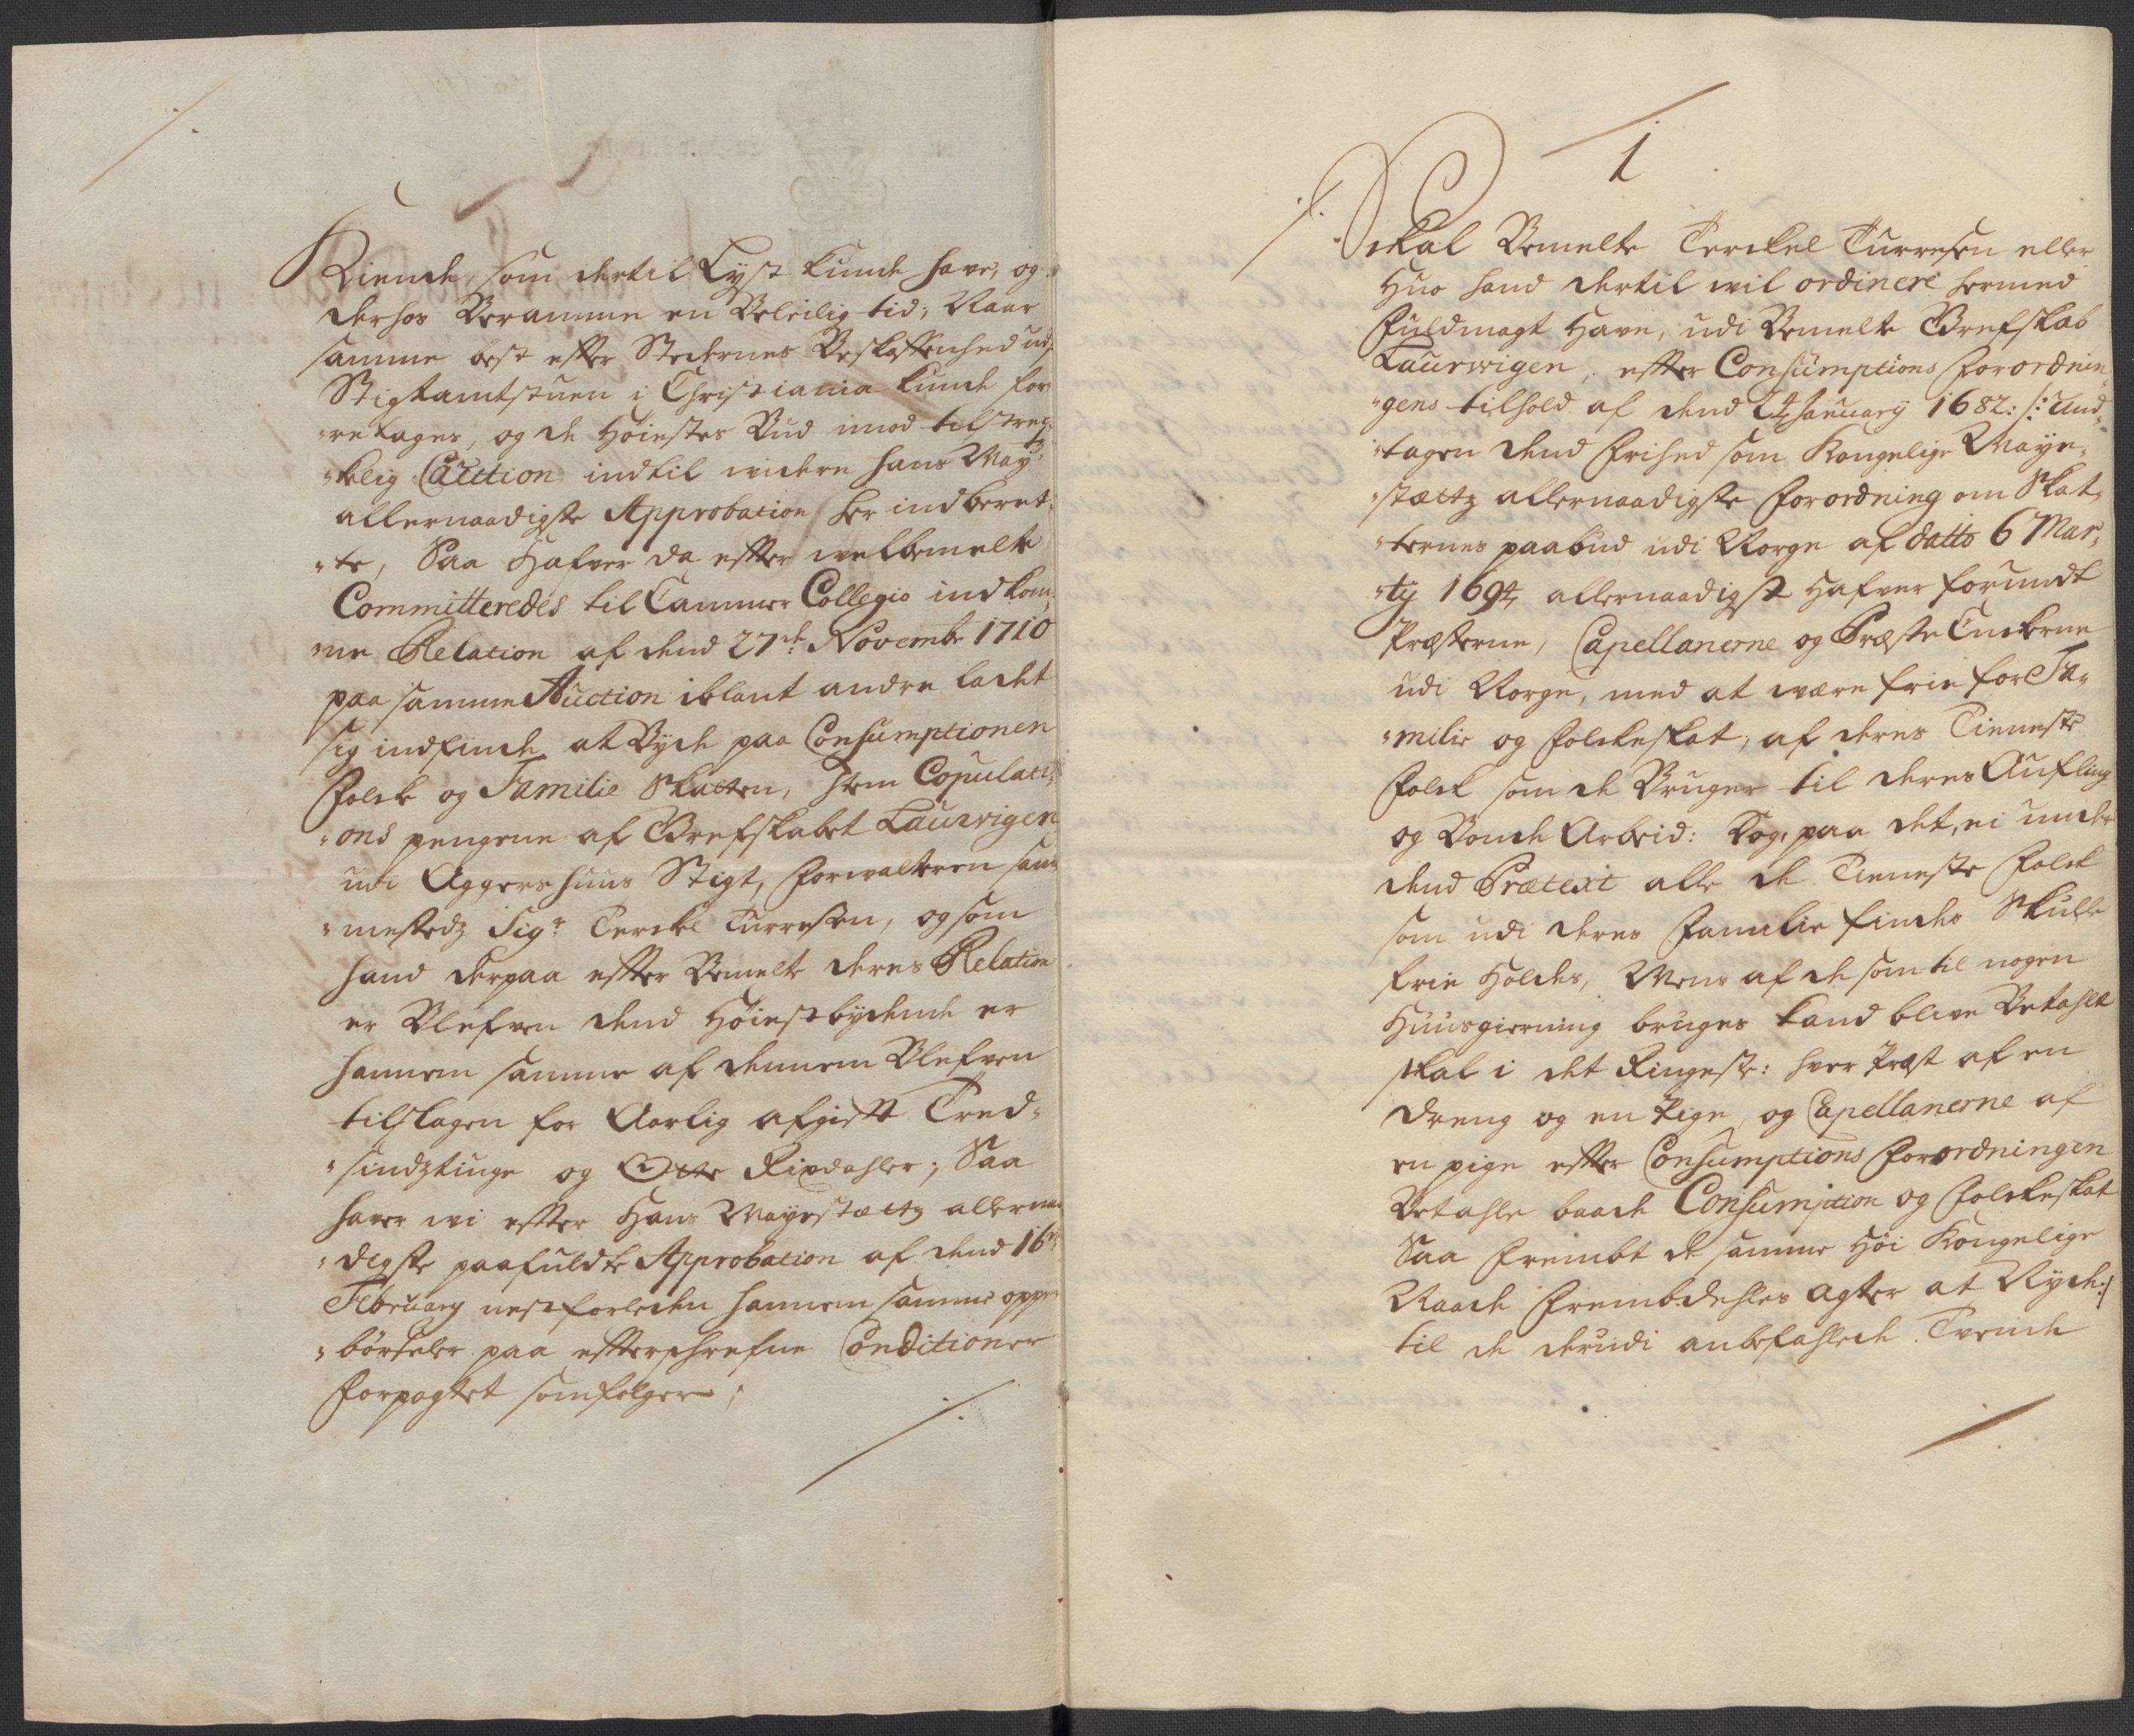 Kiende, som dertil Lyst kunde have, og
derhos Beramme en Beleilig tid, Naar
samme best efter Stedernes Beskaffenhed ud
Stigtamtstuen i Christiania kunde for¬
¬retages, og de Høiestes Bud imod tilstræ¬
¬kelig Caution indtil widere hans May:
allernaadigste Approbation her indberet¬
¬te, Saa Hafver da efter welbemelte
Committeredes til Cammer Collegio indkom¬
¬ne Relation af dend 27de Novembr 1710
paa samme Auction iblant andre ladet
sig indfinde at Byde paa Consumptionen
Folck og Familie Skatten, Item Copulati¬
¬ons pengene af Grefskabet Laurwigen
udi Aggershuus Stigt, Forwalteren sam¬
¬mestedz Sigr Terckel Turresen, og som
hand derpaa efter Bemelte deres Relation
er Blefven dend Høiestbydende er
hannem samme af dennem Blefven
tilslagen for Aarlig afgift Tred¬
¬sindztiuge og Otte Rixdahler; Saa
haver wi efter Hans Mayestættz allernaa¬
¬digste paafuldte Approbation af dend 16de
February nestforleden hannem samme oppe¬
¬børseler paa efterschrefne Conditioner
Forpagtet som følger;
1
Skal Bemelte Terckel Turresen eller
Huo hand dertil wil ordinere hermed
Fuldmagt Have, udi Bemelte Grefskab
Laurwigen, efter Consumptions Forordnin¬
¬gens tilhold af dend 24 January 1682: /: und¬
¬tagen dend Frihed som Kongelige Maye¬
¬stættz allernaadigste Forordning om Skat¬
¬ternes paabud udi Norge af datto 6 Mar¬
¬ty 1694 allernaadigst Hafver forundt
Præsterne, Capellanerne og Præste Enckerne
udi Norge, med at være frie for Fa¬
¬milie og Folckeskat, af deres Tieneste
Folck som de Bruger til deres Aufling
og Bonde Arbeid: Dog, paa det, ei under
dend Prætext alle de Tieneste Folck
som udi deres Familie findes Skulle
frie Holdes, Mens af de som til nogen
Huusgierning bruges kand blive Betahlt
skal i det Ringeste: hver Præst af en
dreng og en Pige, og Capellanerne af
en pige efter Consumptions Forordningen
Betahle baade Consumption og Folckeskat
Saa fremt de samme Høi Kongelige
Naade fremdehles agter at Nyde:/
til de derudi anbefahlede Tvende